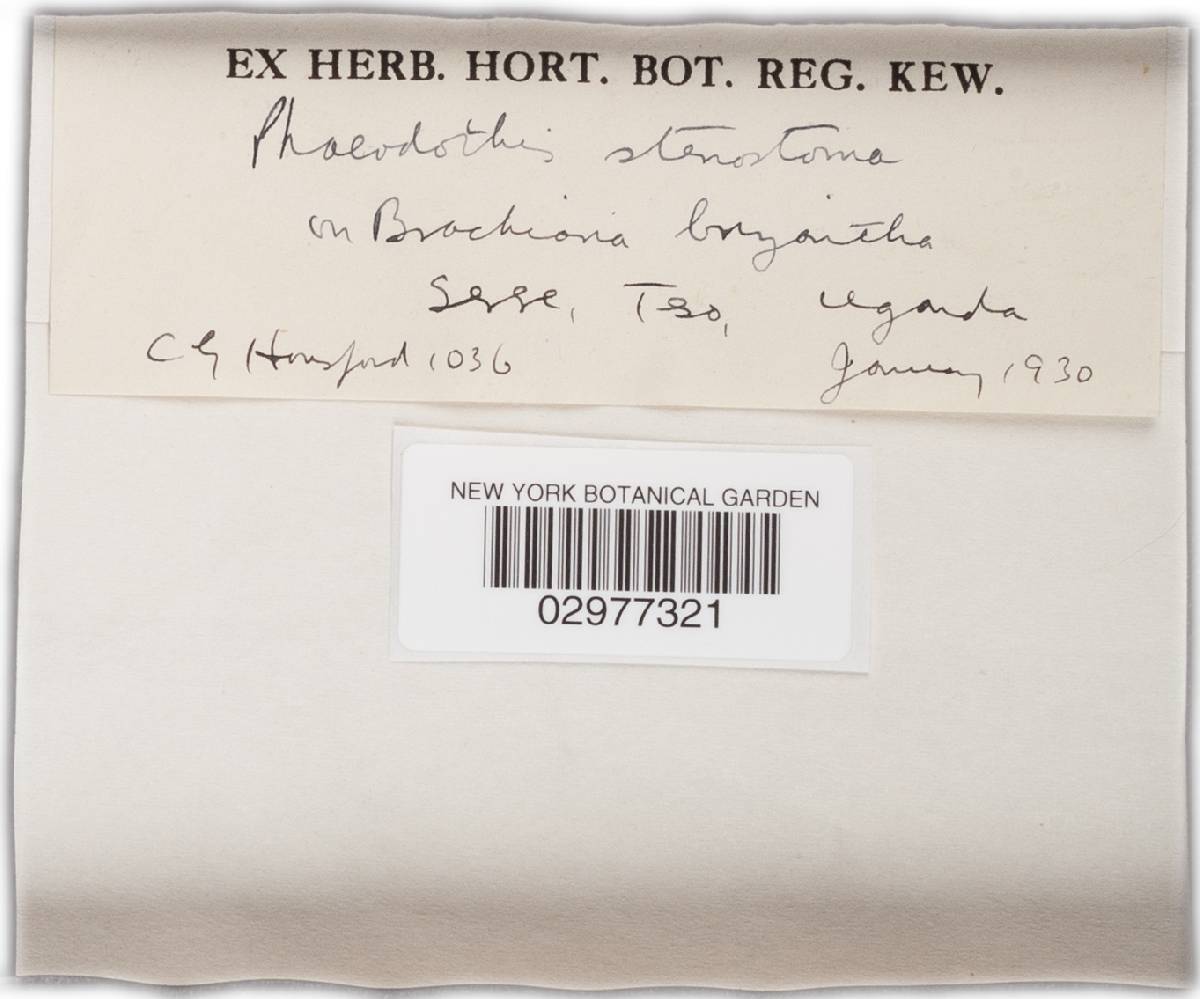 EX HERB. HORT. BOT. REG. KEW.
Phaeodothis stenostoma
on Brachiaria brizantha
Serere, Teso, Uganda
C G Hansford 1036 January 1930
NEW YORK BOTANICAL GARDEN
02977321